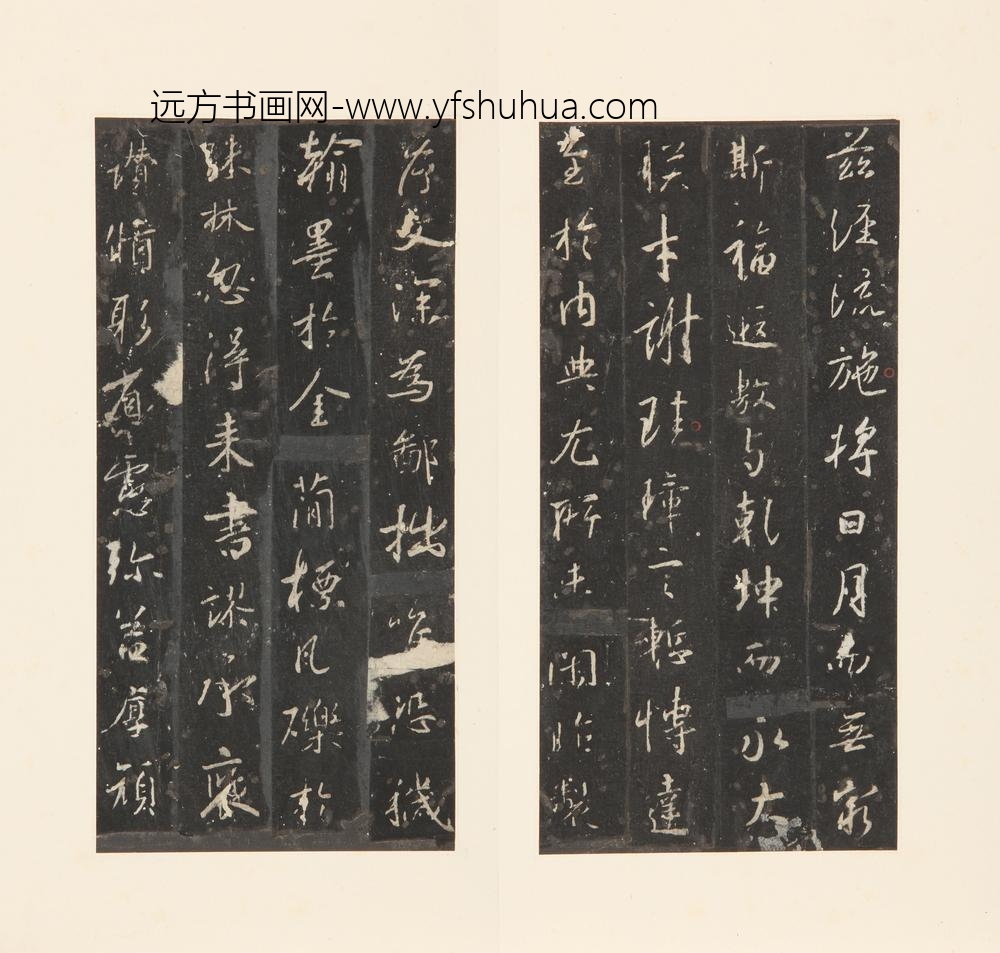 远方书画网-www.yfshuhua.com
茲經流施将日月而無窮
斯福遐敷与乾坤而永大
朕才謝珪璋言慙博達
至於内典尤所未閑昨製
序文深為鄙拙唯恐穢
翰墨於金簡標瓦礫於
珠林忽得来書謬承褒
讚循躬省慮弥益厚顔